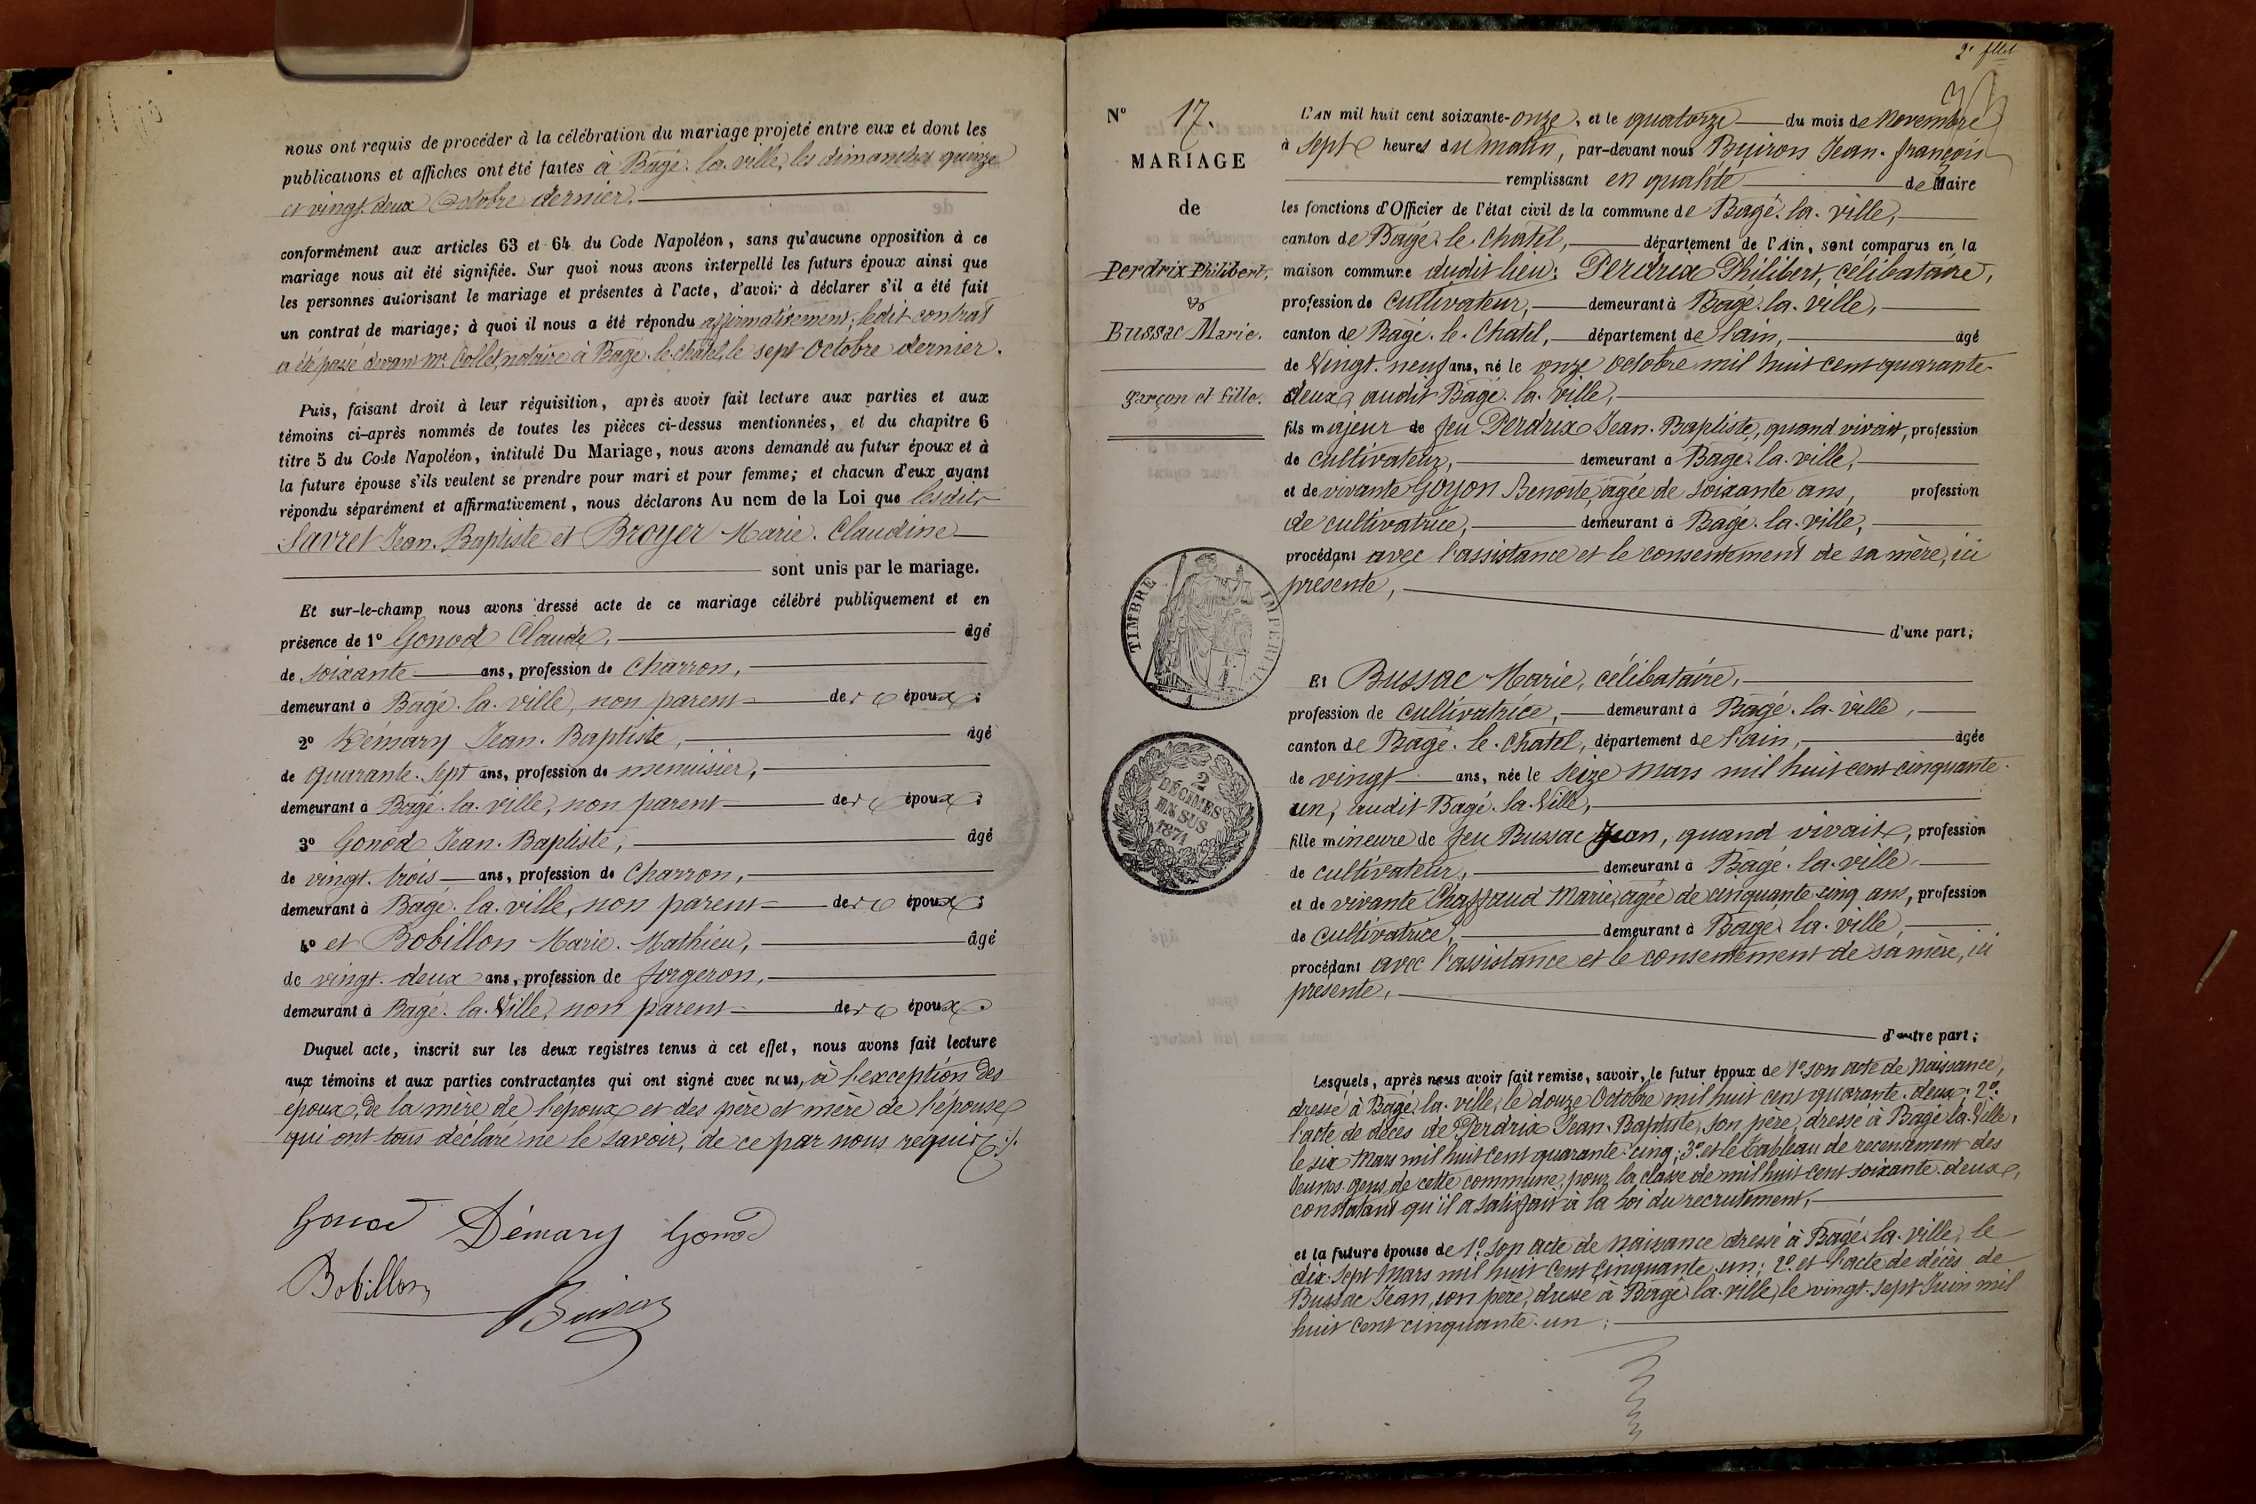 nous ont requis de procéder à la célébration du mariage projeté entre eux et dont les
publications et affiches ont été faites à Bâgé-la-ville, les dimanches quinze
et vingt-deux Octobre dernier.
conformément aux articles 63 et 64 du Code Napoléon, sans qu'aucune opposition à ce
mariage nous ait été signifiée. Sur quoi nous avons interpellé les futurs époux ainsi que
les personnes autorisant le mariage et présentes à l'acte, d'avoir à déclarer s'il a été fait
un contrat de mariage; à quoi il nous a été répondu affirmativement; ledit contrat
a été passé devant Me Collet, notaire à Bâgé-le-Châtel, le sept Octobre dernier.
Puis, faisant droit à leur réquisition, après avoir fait lecture aux parties et aux
témoins ci-après nommés de toutes les pièces ci-dessus mentionnées, et du chapitre 6
titre 5 du Code Napoléon, intitulé Du Mariage, nous avons demandé au futur époux et à
la future épouse s'ils veulent se prendre pour mari et pour femme; et chacun d'eux ayant
répondu séparément et affirmativement, nous déclarons Au nom de la Loi que lesdits
Savret Jean-Baptiste et Broyer Marie-Claudine
sont unis par le mariage.
Et sur-le-champ nous avons dressé acte de ce mariage célébré publiquement et en
présence de 1º Gonod Claude, âgé
de soixante ans, profession de Charron,
demeurant à Bâgé-la-ville, non parent des époux;
2º Démary Jean-Baptiste, âgé
de quarante-sept ans, profession de menuisier,
demeurant à Bâgé-la-ville, non parent des époux;
3º Gonod Jean-Baptiste, âgé
de vingt-trois ans, profession de Charron,
demeurant à Bâgé-la-ville, non parent des époux;
4º et Bobillon Marie-Mathieu, âgé
de vingt-deux ans, profession de forgeron,
demeurant à Bâgé-la-Ville, non parent des époux.
Duquel acte, inscrit sur les deux registres tenus à cet effet, nous avons fait lecture
aux témoins et aux parties contractantes qui ont signé avec nous, à l'exception des
époux, de la mère de l'époux et des père et mère de l'épouse
qui ont tous déclaré ne le savoir, de ce par nous requis.
Gonod Démary Gonod
Bobillon
Buiron
2e fllet
Nº 17.
MARIAGE
de
Perdrix Philibert,
&
Bussac Marie.
garçon et fille.
TIMBRE IMPERIAL
2
DÉCIMES
EN SUS
1871
L'AN mil huit cent soixante-onze, et le quatorze du mois de Novembre
à sept heures du matin, par-devant nous Buiron Jean-François
remplissant en qualité de Maire
les fonctions d'Officier de l'état civil de la commune de Bâgé-la-ville,
canton de Bâgé-le-Châtel, département de l'Ain, sont comparus en la
maison commune dudit lieu: Perdrix Philibert, célibataire,
profession de cultivateur, demeurant à Bâgé-la-ville,
canton de Bâgé-le-Châtel, département de l'ain, âgé
de Vingt-neuf ans, né le onze octobre mil huit cent quarante-
deux, audit Bâgé-la-ville,
fils majeur de feu Perdrix Jean-Baptiste, quand vivait, profession
de cultivateur, demeurant à Bâgé-la-ville,
et de vivante Goyon Benoite, âgée de soixante ans, profession
de cultivatrice, demeurant à Bâgé-la-ville,
procédant avec l'assistance et le consentement de sa mère, ici
présente,
d'une part;
Et Bussac Marie, célibataire,
profession de cultivatrice, demeurant à Bâgé-la-ville,
canton de Bâgé-le-Châtel, département de l'ain, âgée
de vingt ans, née le seize Mars mil huit cent cinquante-
un, audit Bâgé-la-Ville,
fille mineure de feu Bussac Jean, quand vivait, profession
de cultivateur, demeurant à Bâgé-la-ville,
et de vivante Chaffaud Marie, âgée de cinquante-cinq ans, profession
de cultivatrice, demeurant à Bâgé-la-ville,
procédant avec l'assistance et le consentement de sa mère, ici
présente,
d'autre part;
Lesquels, après nous avoir fait remise, savoir, le futur époux de 1º son acte de Naissance,
dressé à Bâgé-la-ville, le douze Octobre mil huit cent quarante-deux; 2º
l'acte de décès de Perdrix Jean-Baptiste, son père, dressé à Bâgé-la-Ville,
le six Mars mil huit cent quarante-cinq; 3º et le Tableau de recensement des
Jeunes gens de cette commune, pour la classe de mil huit cent soixante-deux,
constatant qu'il a satisfait à la loi du recrutement,
et la future épouse de 1º son acte de naissance dressé à Bâgé-la-ville, le
dix-sept Mars mil huit cent cinquante-un; 2º et l'acte de décès de
Bussac Jean, son père, dressé à Bâgé-la-ville, le vingt-sept Juin mil
huit cent cinquante-un;